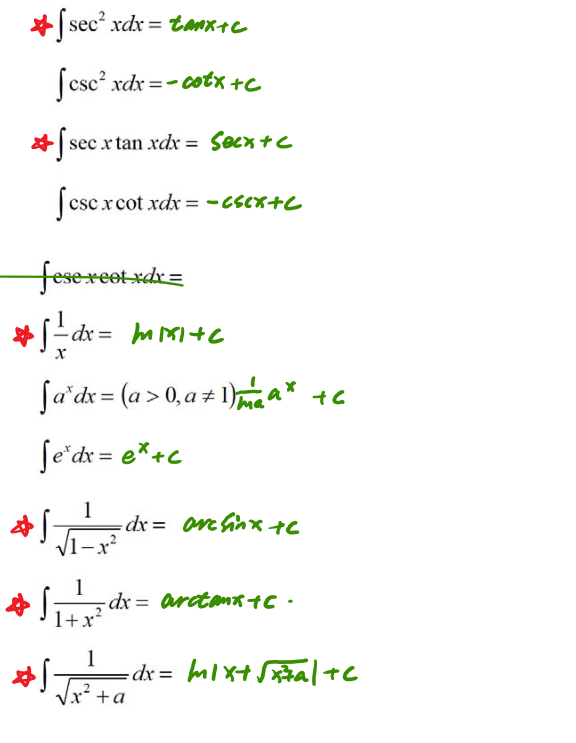 ☆ ∫ sec² xdx = tanx+c
∫ csc² xdx = -cotx+c
☆ ∫ sec x tan xdx = secx+c
∫ csc x cot xdx = -cscx+c
∫ csc x cot xdx =
☆ ∫ 1/x dx = ln|x|+c
∫ aˣdx = (a > 0, a ≠ 1) 1/lna aˣ +c
∫ eˣdx = eˣ+c
☆ ∫ 1/√(1−x²) dx = arcsinx+c
☆ ∫ 1/(1+x²) dx = arctanx+c.
☆ ∫ 1/√(x²+a) dx = ln|x+√(x²+a)|+c